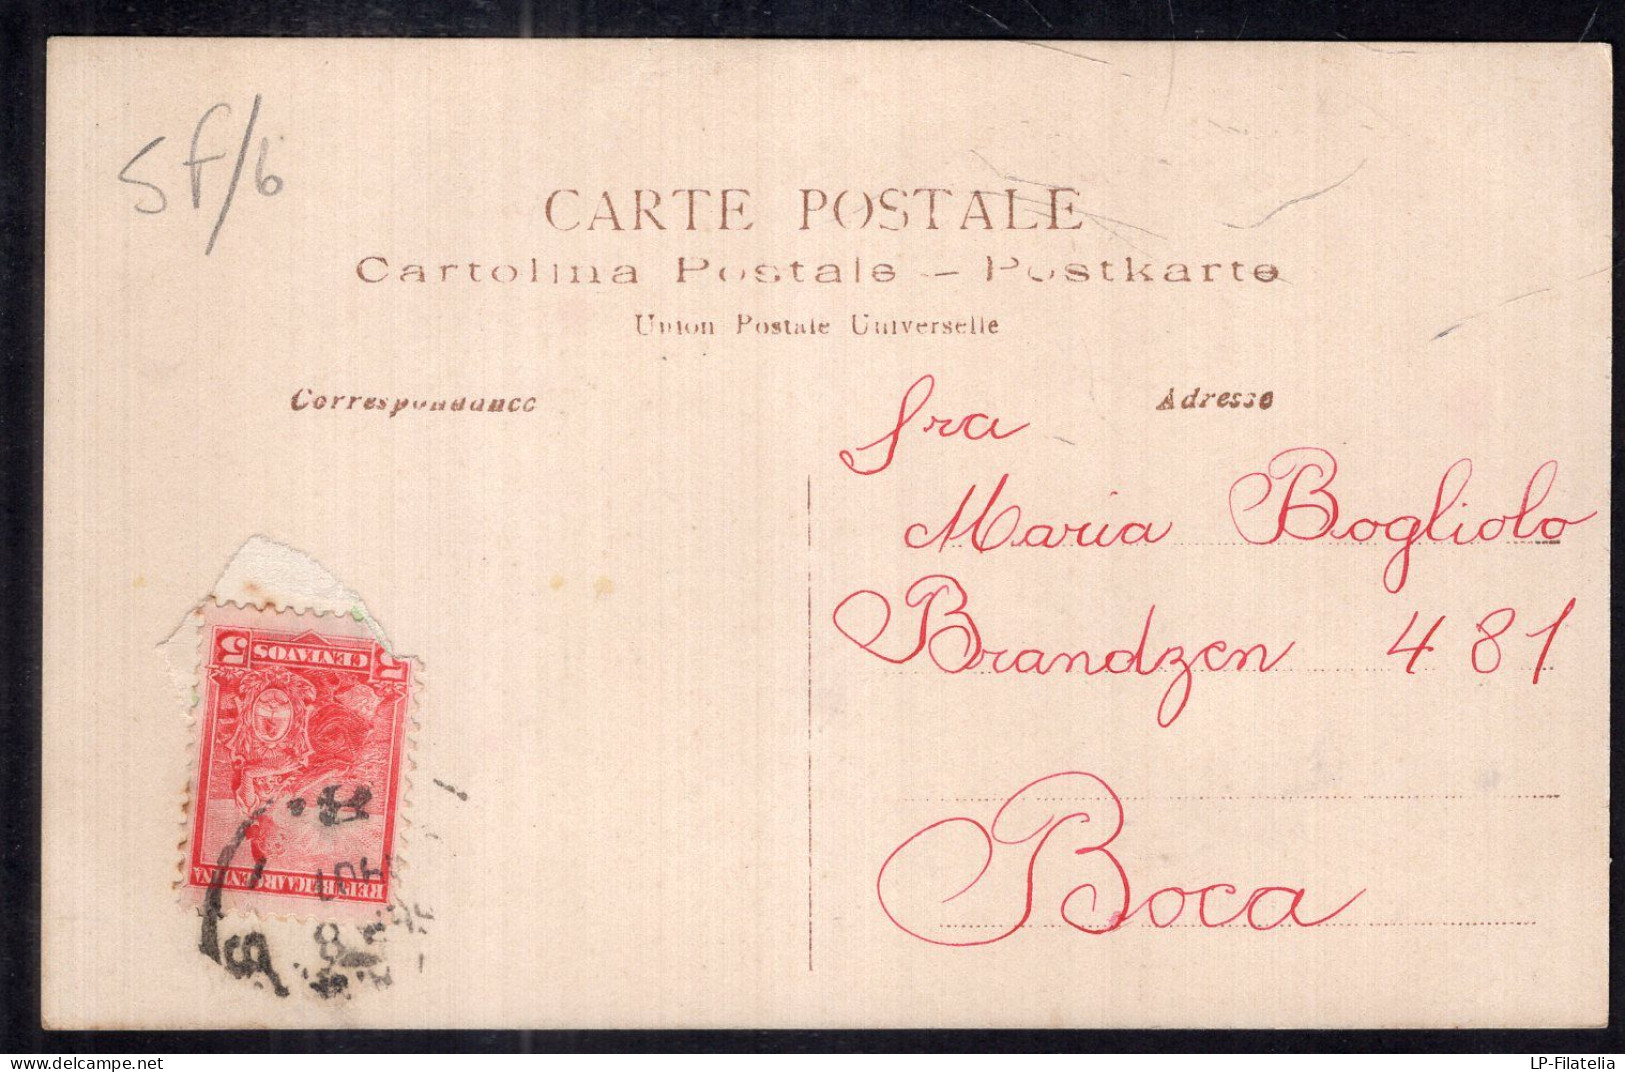 5f/6
CARTE POSTALE
Cartolina Postale - Postkarte
Union Postale Universelle
Correspondance
Adresse
Sra
Maria Bogliolo
Brandzen 481
Boca
5 CENTAVOS 5
REPUBLICA ARGENTINA
delcampe.net
LP-Filatelia